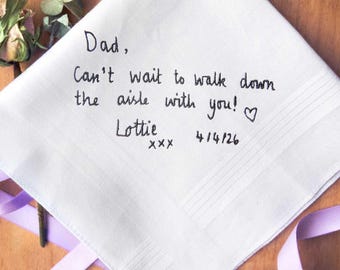 Dad,
Can't wait to walk down
the aisle with you! ♡
Lottie
xxx 4/4/26